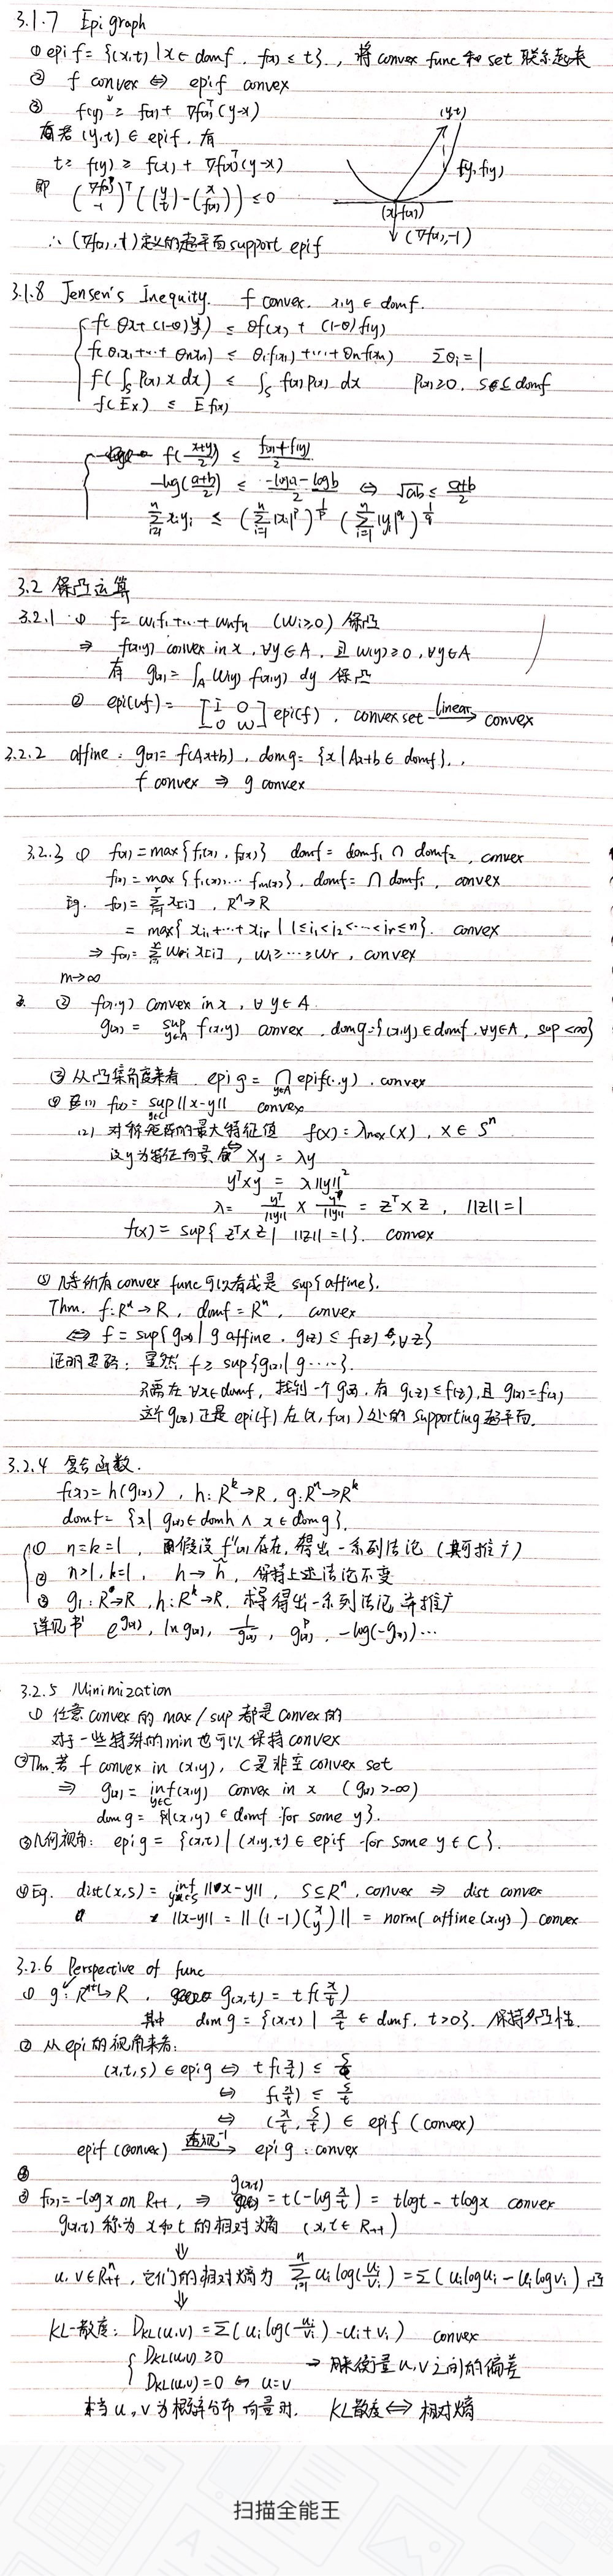 3.1.7 Epigraph
① epi f = {(x,t) | x∈domf, f(x) ≤ t}, 将 convex func 和 set 联系起来
② f convex ⇔ epi f convex
③ f(y) ≥ f(x) + ∇f(x)ᵀ(y-x)
若 (y,t) ∈ epi f, 有
t ≥ f(y) ≥ f(x) + ∇f(x)ᵀ(y-x)
即 (∇f(x) -1)ᵀ((y t) - (x f(x))) ≤ 0
∴ (∇f(x), -1) 定义的超平面 support epi f
(y,t)
(y,f(y))
(x,f(x))
(∇f(x),-1)
3.1.8 Jensen's Inequity. f convex. x,y ∈ domf.
f(θx+(1-θ)y) ≤ θf(x) + (1-θ)f(y)
f(θ₁x₁+…+θₙxₙ) ≤ θ₁f(x₁)+…+θₙf(xₙ) Σθᵢ=1
f(∫ₛ P(x) x dx) ≤ ∫ₛ f(x)P(x) dx P(x)≥0, S⊆domf
f(Ex) ≤ E f(x)
f((x+y)/2) ≤ (f(x)+f(y))/2
-log((a+b)/2) ≤ (-loga-logb)/2 ⇔ √ab ≤ (a+b)/2
Σᵢ₌₁ⁿ xᵢyᵢ ≤ (Σᵢ₌₁ⁿ|xᵢ|ᵖ)^(1/p) (Σᵢ₌₁ⁿ|yᵢ|^q)^(1/q)
3.2 保凸运算
3.2.1 ① f = w₁f₁+…+wₙfₙ (wᵢ≥0) 保凸
⇒ f(x,y) convex in x, ∀y∈A, 且 w(y)≥0, ∀y∈A
有 g(x) = ∫_A w(y) f(x,y) dy 保凸
② epi(wf) = [I 0; 0 w] epi(f), convex set linear→ convex
3.2.2 affine: g(x) = f(Ax+b), domg = {x | Ax+b ∈ domf},
f convex ⇒ g convex
3.2.3 ① f(x) = max{f₁(x), f₂(x)} domf = domf₁ ∩ domf₂, convex
f(x) = max{f₁(x),… fₘ(x)}, domf = ∩domfᵢ, convex
Eg. f(x) = Σᵢ₌₁ʳ x[i], Rⁿ→R
= max{xᵢ₁+…+xᵢᵣ | 1≤i₁<i₂<…<iᵣ≤n}. convex
⇒ f(x) = Σ wᵢ x[i], w₁≥…≥wᵣ, convex
m→∞
② f(x,y) convex in x, ∀y∈A
g(x) = sup_{y∈A} f(x,y) convex, domg={(x,y)∈domf, ∀y∈A, sup<∞}
③ 从凸集角度来看 epi g = ∩_{y∈A} epi f(·,y), convex
④ Eg. (1) f(x) = sup_{y∈C} ||x-y|| convex
(2) 对称矩阵的最大特征值 f(X) = λmax(X), X∈Sⁿ
设y为特征向量 ⇔ Xy = λy
yᵀXy = λ||y||²
λ = yᵀ/||y|| X y/||y|| = zᵀXz, ||z||=1
f(X) = sup{zᵀXz | ||z||=1}. convex
⑤ 几乎所有 convex func 可以看成是 sup{affine}.
Thm. f: Rⁿ→R, domf = Rⁿ, convex
⇔ f = sup{g(x) | g affine, g(z) ≤ f(z), ∀z}
证明思路: 显然 f ≥ sup{g(x) | g……}.
只需在 ∀x∈domf, 找到一个g(z), 有 g(z)≤f(z), 且 g(x)=f(x)
这个g(z)正是epi(f)在(x,f(x))处的 supporting 超平面.
3.2.4 复合函数.
f(x) = h(g(x)), h: Rᵏ→R, g: Rⁿ→Rᵏ
domf = {x | g(x)∈domh ∧ x∈domg}.
① n=k=1, 假设f''(x)存在, 得出一系列结论 (其可推广)
② n>1, k=1, h→h̃, 保持上述结论不变
③ gᵢ: Rⁿ→R, h: Rᵏ→R, 得出一系列结论并推广
详见书 e^g(x), ln g(x), 1/g(x), g(x)ᵖ, -log(-g(x))…
3.2.5 Minimization
① 任意 convex 的 max/sup 都是 convex 的
对于一些特殊的min也可以保持 convex
② Thm. 若 f convex in (x,y), C是非空 convex set
⇒ g(x) = inf_{y∈C} f(x,y) convex in x (g(x)>-∞)
dom g = {x|(x,y)∈domf for some y}.
③ 几何视角: epi g = {(x,t) | (x,y,t) ∈ epi f for some y∈C}.
④ Eg. dist(x,S) = inf_{y∈S} ||x-y||, S⊆Rⁿ, convex ⇒ dist convex
||x-y|| = ||(1 -1)(x y)|| = norm(affine(x,y)) convex
3.2.6 Perspective of func
① g: Rⁿ⁺¹→R, g(x,t) = t f(x/t)
其中 dom g = {(x,t) | x/t ∈ domf, t>0}. 保持凸性.
② 从epi的视角来看:
(x,t,s) ∈ epi g ⇔ t f(x/t) ≤ s
⇔ f(x/t) ≤ s/t
⇔ (x/t, s/t) ∈ epi f (convex)
epi f (convex) 透视⁻¹→ epi g: convex
③ f(x) = -log x on R₊₊, ⇒ g(x,t) = t(-log x/t) = tlogt - tlogx convex
g(x,t) 称为 x和t 的相对熵 (x,t∈R₊₊)
⇓
u,v∈Rⁿ₊₊, 它们的相对熵为 Σᵢ₌₁ⁿ uᵢlog(uᵢ/vᵢ) = Σ(uᵢloguᵢ - uᵢlogvᵢ) 凸
⇓
KL-散度: D_KL(u,v) = Σ(uᵢlog(uᵢ/vᵢ) - uᵢ+vᵢ) convex
D_KL(u,v) ≥0 → 用来衡量 u,v 之间的偏差
D_KL(u,v) = 0 ⇔ u=v
当 u,v 为概率分布向量时, KL散度 ⇔ 相对熵
扫描全能王